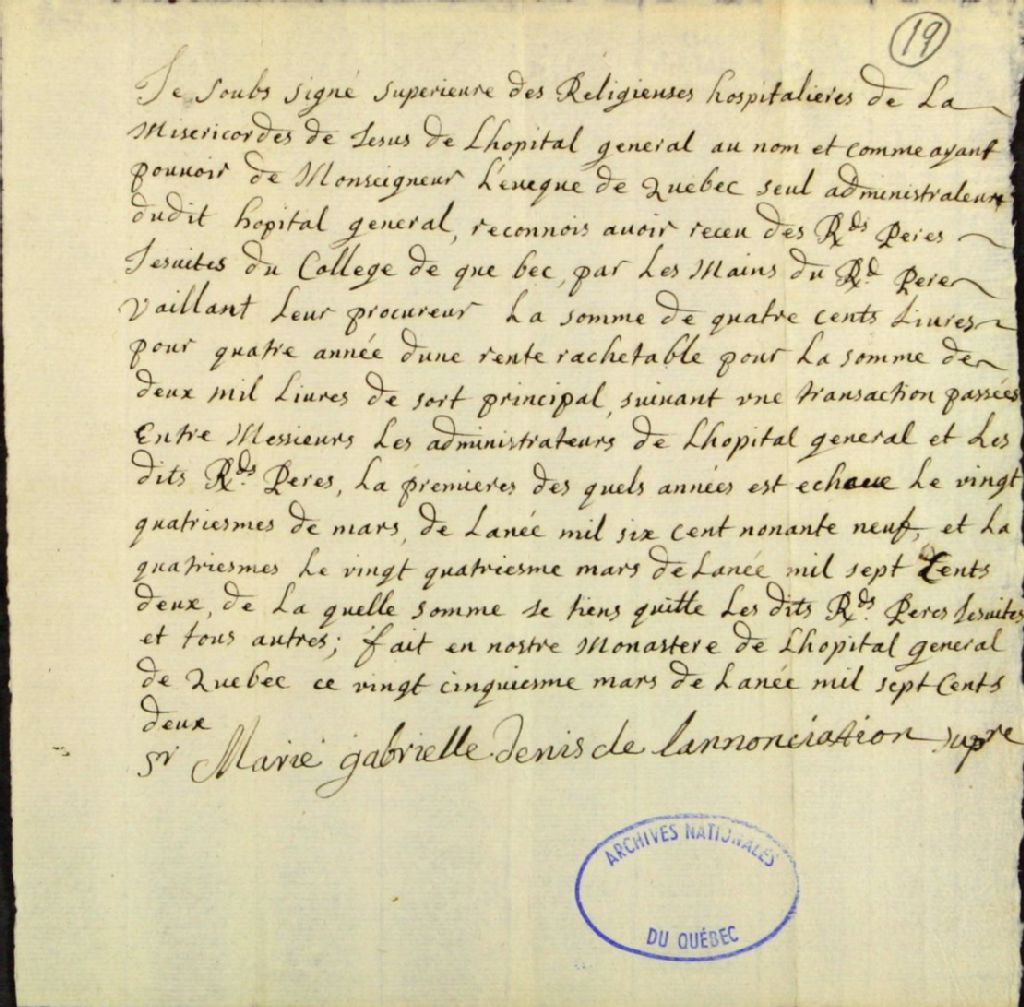 19
Je soubs signé superieure des Religieuses hospitalieres de La
Misericordes de Jesus de Lhopital general au nom et comme ayant
pouuoir de Monseigneur L'eueque de Quebec seul administrateurs
dudit hopital general, reconnois auoir receu des Rds Peres
Jesuites du College de que bec, par Les Mains du Rd Pere
Vaillant Leur procureur La somme de quatre cents Liures
pour quatre année dune rente rachetable pour La somme de
deux mil Liures de sort principal, suiuant vne transaction passées
Entre Messieurs Les administrateurs de Lhopital general et Les
dits Rds Peres, La premieres des quels années est echeue Le vingt
quatriesmes de mars, de Lanée mil six cent nonante neuf, et La
quatriesmes Le vingt quatriesme mars de Lanée mil sept Cents
deux, de La quelle somme Je tiens quitte Les dits Rds Peres Jesuites
et tous autres; fait en nostre Monastere de Lhopital general
de Quebec ce vingt cinquiesme mars de Lanée mil sept Cents
deux
Sr Marie gabrielle denis de lannonciation supre
ARCHIVES NATIONALES
DU QUÉBEC